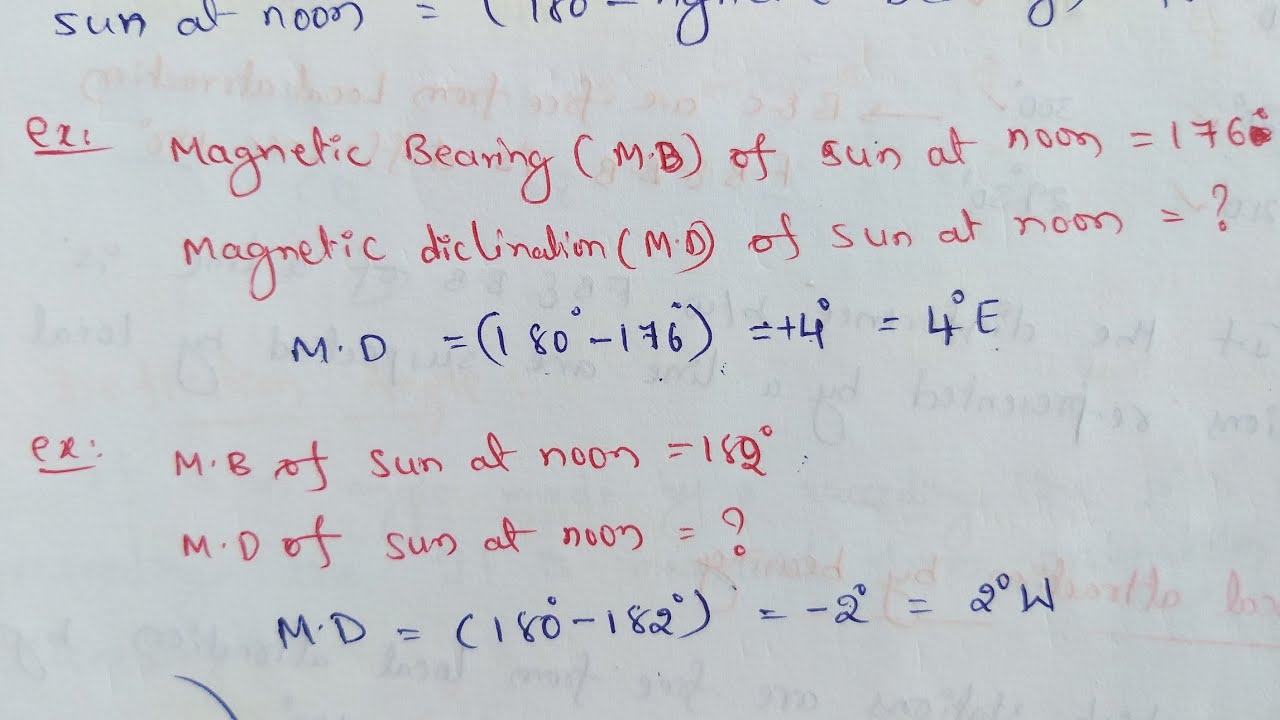 sun at noon = (180 -
ex: Magnetic Bearing (M.B) of sun at noon = 176°
Magnetic diclination (M.D) of sun at noon = ?
M.D = (180° - 176°) = +4° = 4°E
ex: M.B of sun at noon = 182°
M.D of sun at noon = ?
M.D = (180° - 182°) = -2° = 2°W